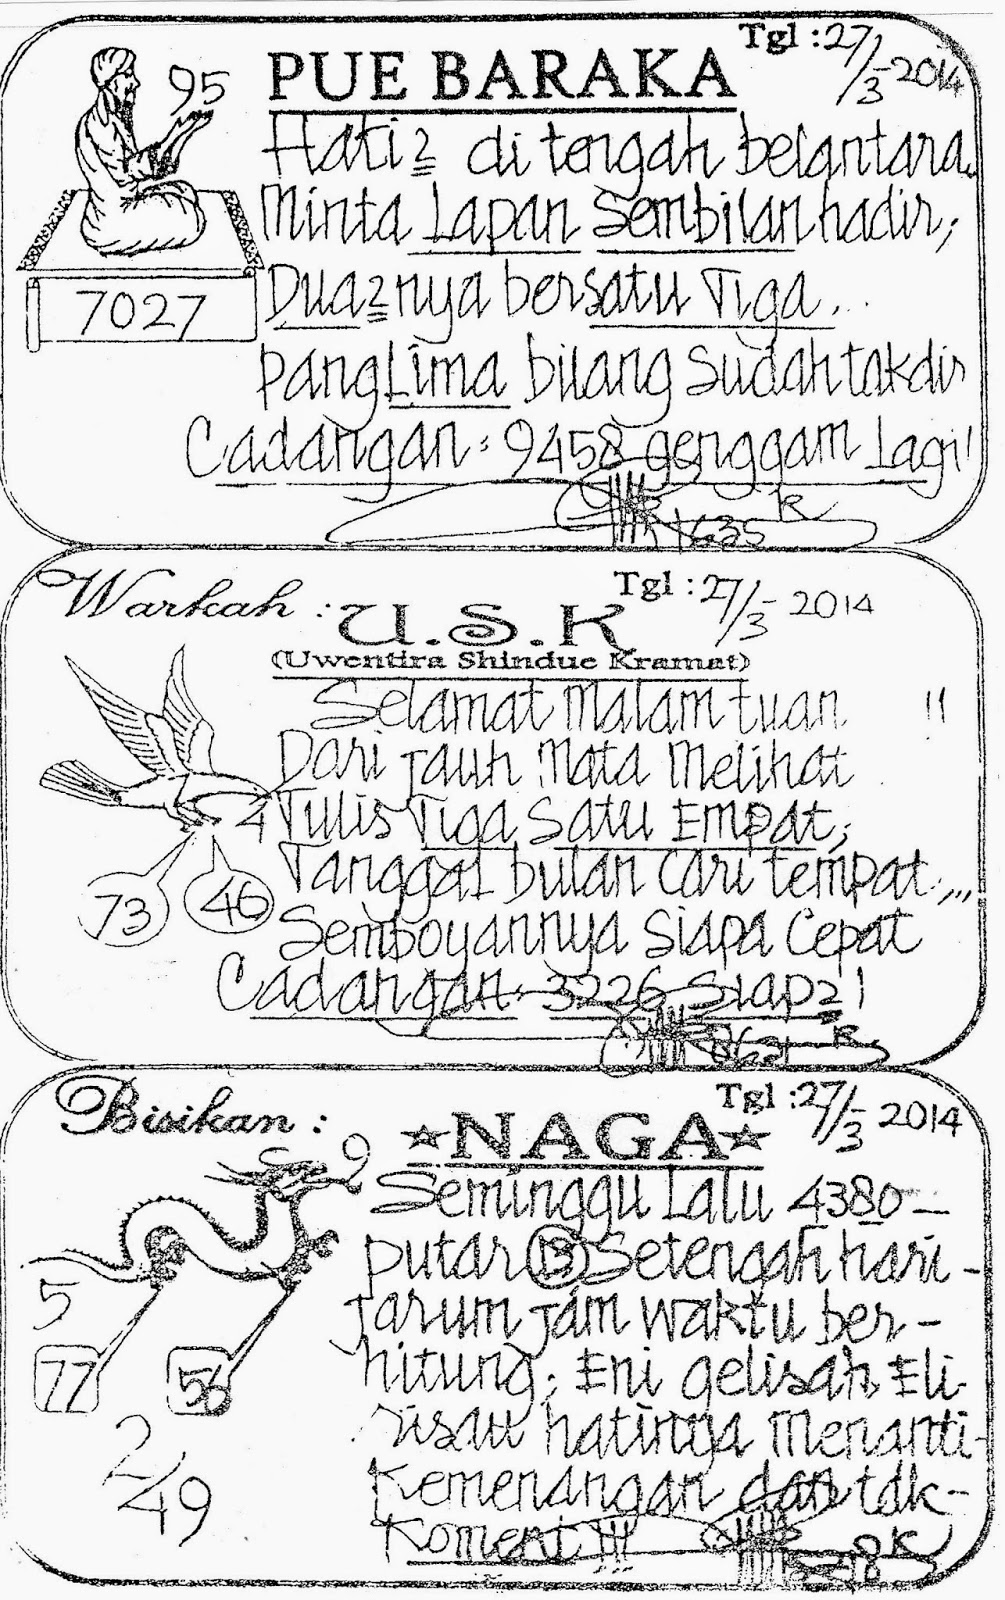 Tgl : 27/3-2014
95
PUE BARAKA
Hati2 di tengah belantara..
Minta Lapan Sembilan hadir,
7027
Dua2nya bersatu Tiga...
PangLima bilang sudah takdir
Cadangan : 9458 genggam Lagi!
1635 R
Warkah : U.S.K
Tgl : 27/3-2014
(Uwentira Shindue Kramat)
Selamat Malam tuan !!
Dari jauh Mata Melihat
4
Tulis Tiga Satu Empat;
Tanggal bulan Cari tempat.,,,
73
46
Semboyannya Siapa Cepat
Cadangan : 3226 Siap2 !
R
Bisikan : NAGA
Tgl : 27/3-2014
9
Seminggu Lalu 4380 -
putar 13 Setengah hari -
5
jarum jam waktu ber -
77
56
hitung; Eni gelisah, Eli-
risau hatinya Menanti-
2/49
Kemenangan dan tak-
Koment !!!
OK